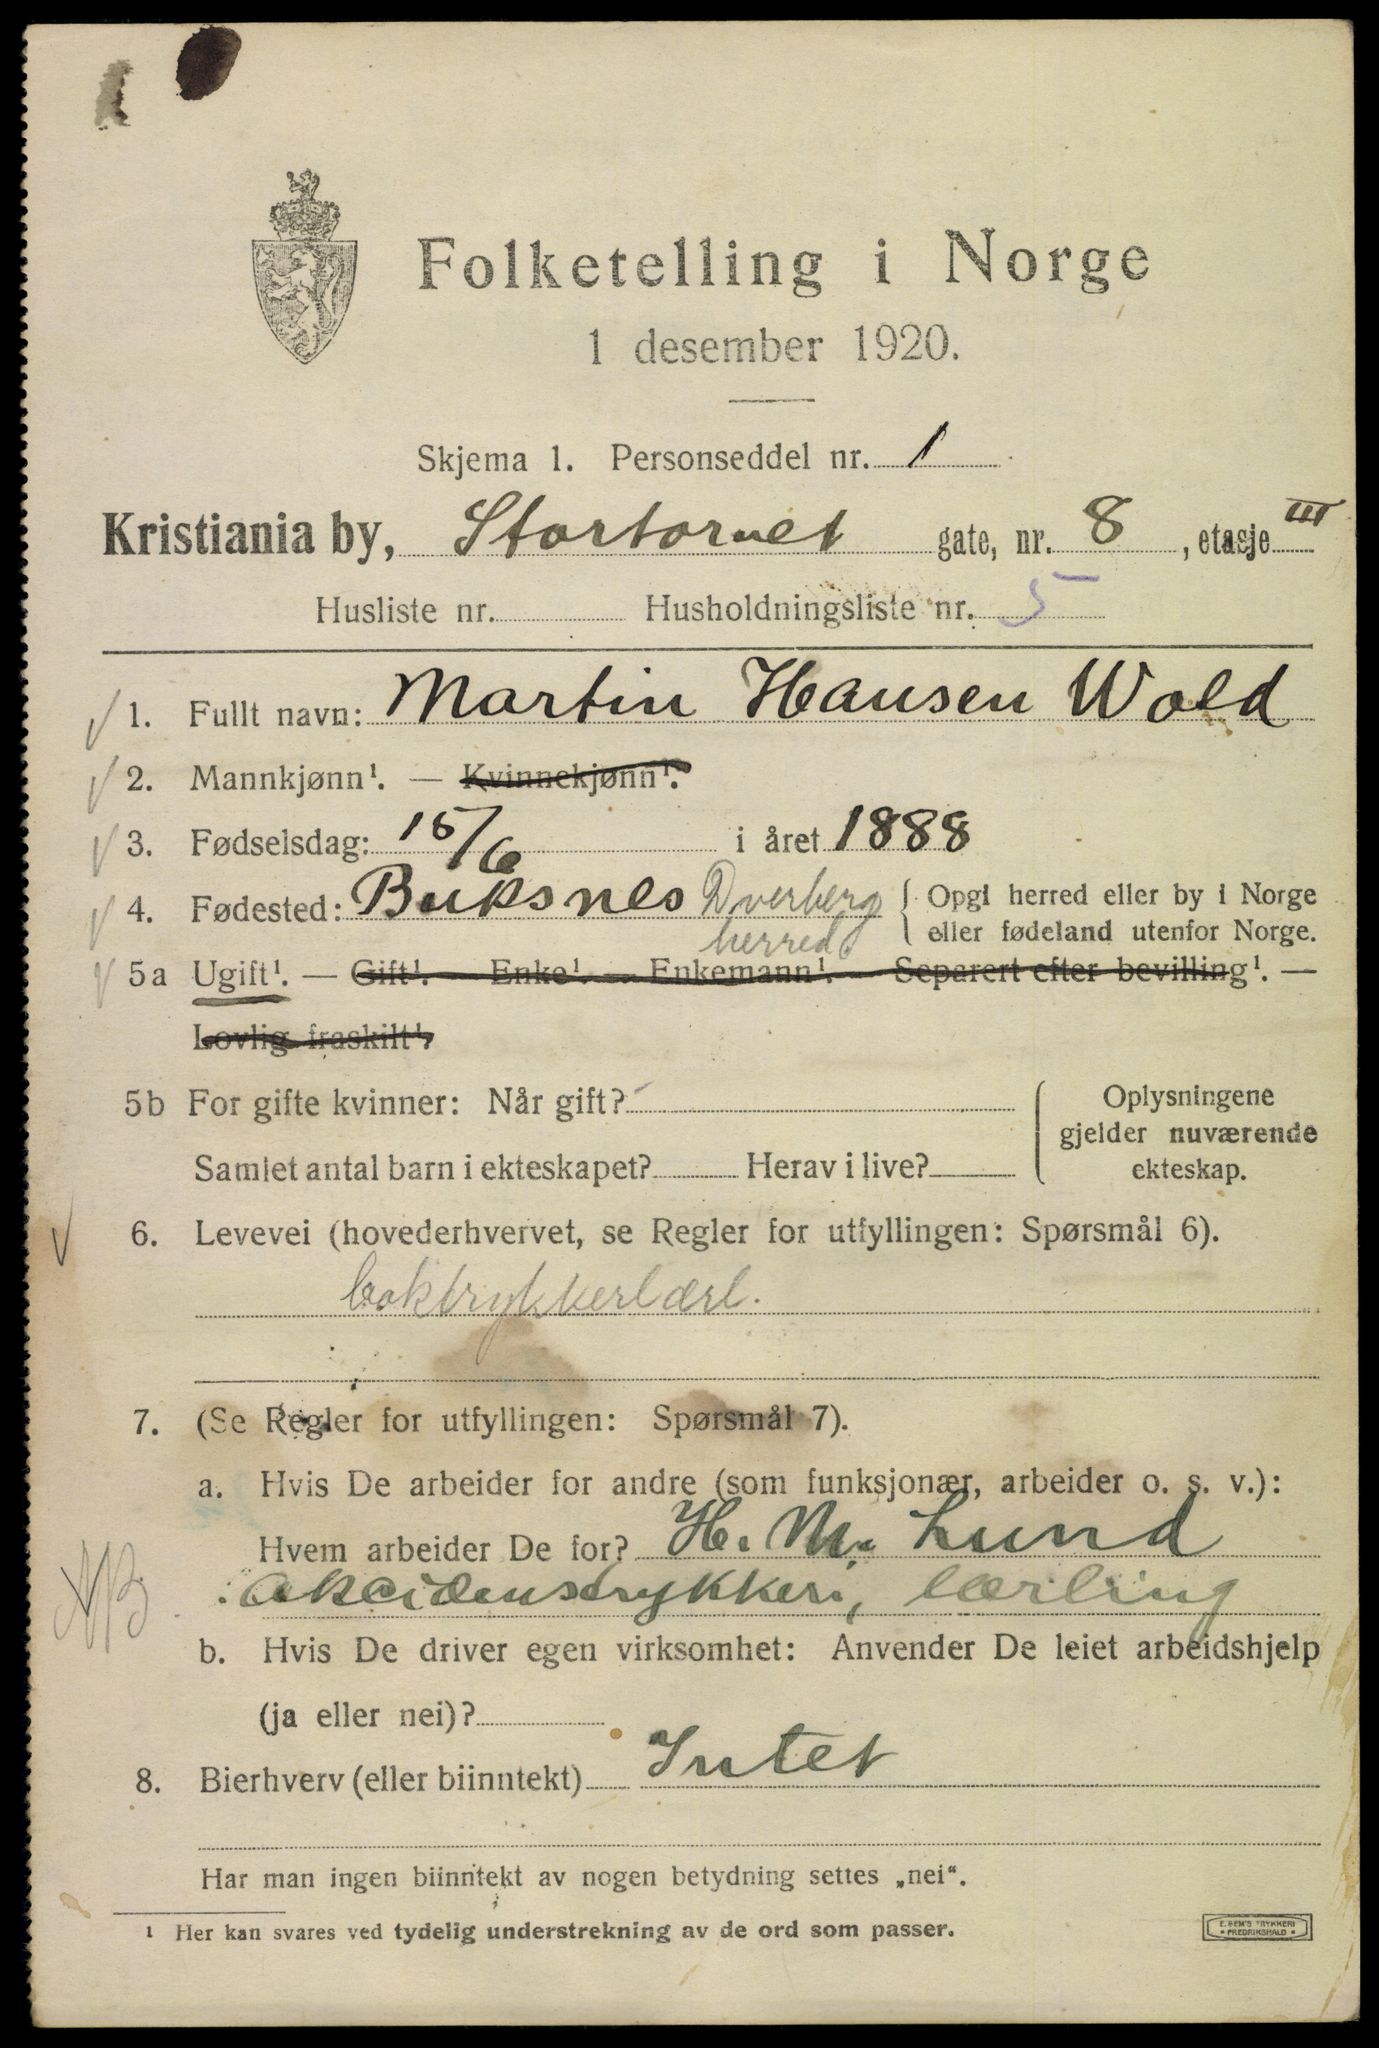 Folketelling i Norge
1 desember 1920.
Skjema 1. Personseddel nr. 1
Kristiania by, Stortorvet gate, nr. 8, etasje III
Husliste nr. Husholdningsliste nr. 5
1. Fullt navn: Martin Hansen Wold
2. Mannkjønn¹. — Kvinnekjønn¹.
3. Fødselsdag: 15/6 i året 1888
4. Fødested: Buksnes Dverberg herred { Opgi herred eller by i Norge
eller fødeland utenfor Norge.
5a Ugift¹. — Gift¹. — Enke¹. — Enkemann¹. — Separert efter bevilling¹. —
Lovlig fraskilt¹.
5b For gifte kvinner: Når gift? { Oplysningene
gjelder nuværende
Samlet antal barn i ekteskapet? Herav i live? ekteskap.
6. Levevei (hovederhvervet, se Regler for utfyllingen: Spørsmål 6).
boktrykkerlærl.
7. (Se Regler for utfyllingen: Spørsmål 7).
a. Hvis De arbeider for andre (som funksjonær, arbeider o. s. v.):
Hvem arbeider De for? H. M. Lund
akcidenstrykkeri, lærling
b. Hvis De driver egen virksomhet: Anvender De leiet arbeidshjelp
(ja eller nei)?
8. Bierhverv (eller biinntekt) Intet
Har man ingen biinntekt av nogen betydning settes „nei“.
¹ Her kan svares ved tydelig understrekning av de ord som passer.
E. SEM'S TRYKKERI
FREDRIKSHALD